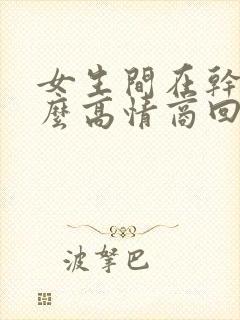 女生間在幹
麼高情商回
波拏巴